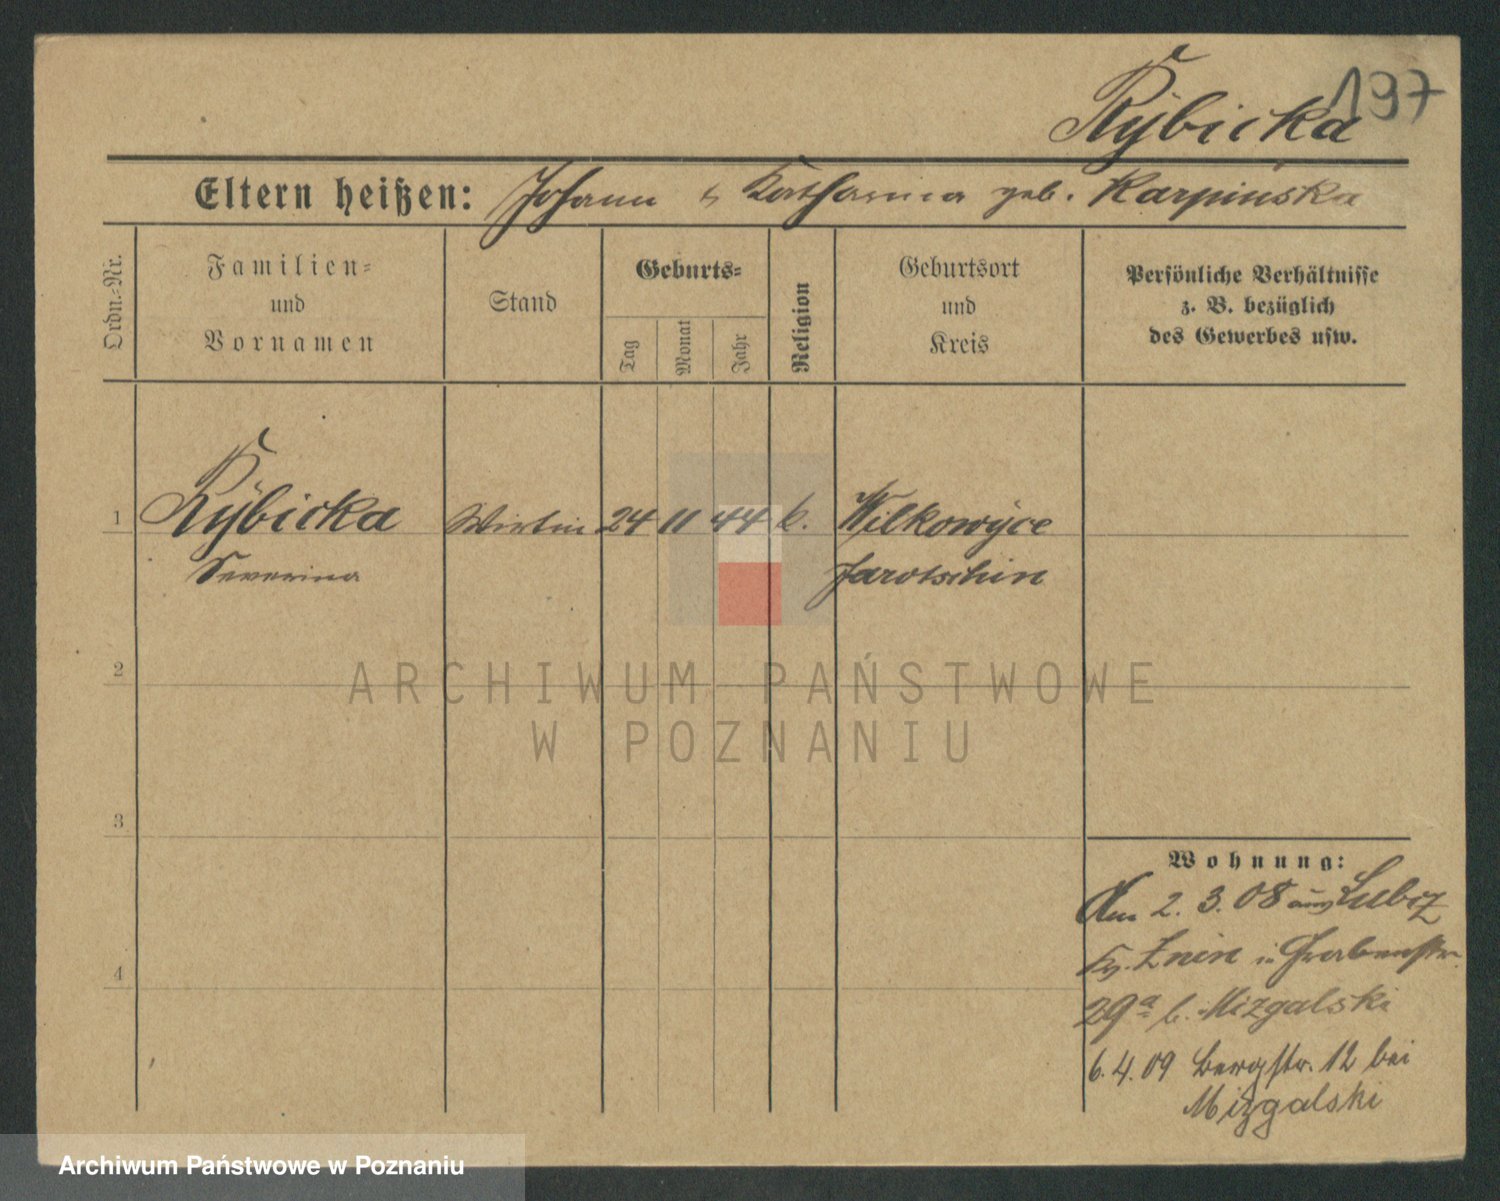 197
Rÿbicka
Eltern heißen: Johann & Katharina geb. Karpinska
Ordn.-Nr.
Familien-
und
Vornamen
Stand
Geburts-
Tag
Monat
Jahr
Religion
Geburtsort
und
Kreis
Persönliche Verhältnisse
z. B. bezüglich
des Gewerbes usw.
1 Rÿbicka Wirtin 24 11 44 k. Wilkowÿce
Severina Jarotschin
2
3
4
Wohnung:
Am 2. 3. 08 aus Lubcz
Kr. Znin in Grabenstr.
29a b. Mizgalski
6. 4. 09 Bergstr. 12 bei
Mizgalski
ARCHIWUM PAŃSTWOWE
W POZNANIU
Archiwum Państwowe w Poznaniu